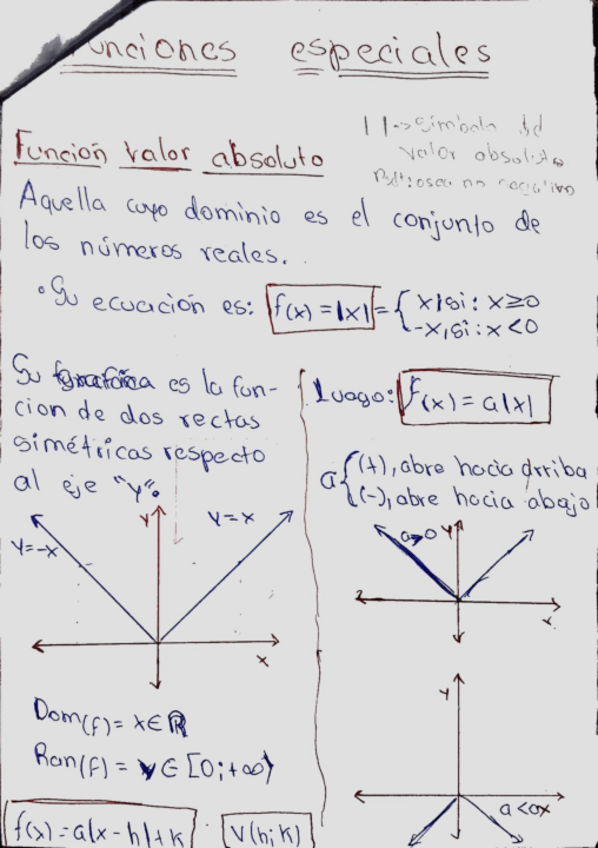 Funciones especiales
| | -> símbolo del
valor absoluto
o sea no negativo
Función valor absoluto
Aquella cuyo dominio es el conjunto de
los números reales.
• Su ecuación es: f(x) = |x| = { x, si: x ≥ 0
-x, si: x < 0
Su grafica es la fun-
cion de dos rectas
simétricas respecto
al eje "y".
y=-x
y
y=x
x
Dom(f) = x ∈ ℝ
Ran(f) = y ∈ [0; +∞⟩
f(x) = a|x - h| + k
V(h; k)
Luego: f(x) = a|x|
a { (+), abre hacia arriba
(-), abre hacia abajo
a>0
y
x
y
a<0
x